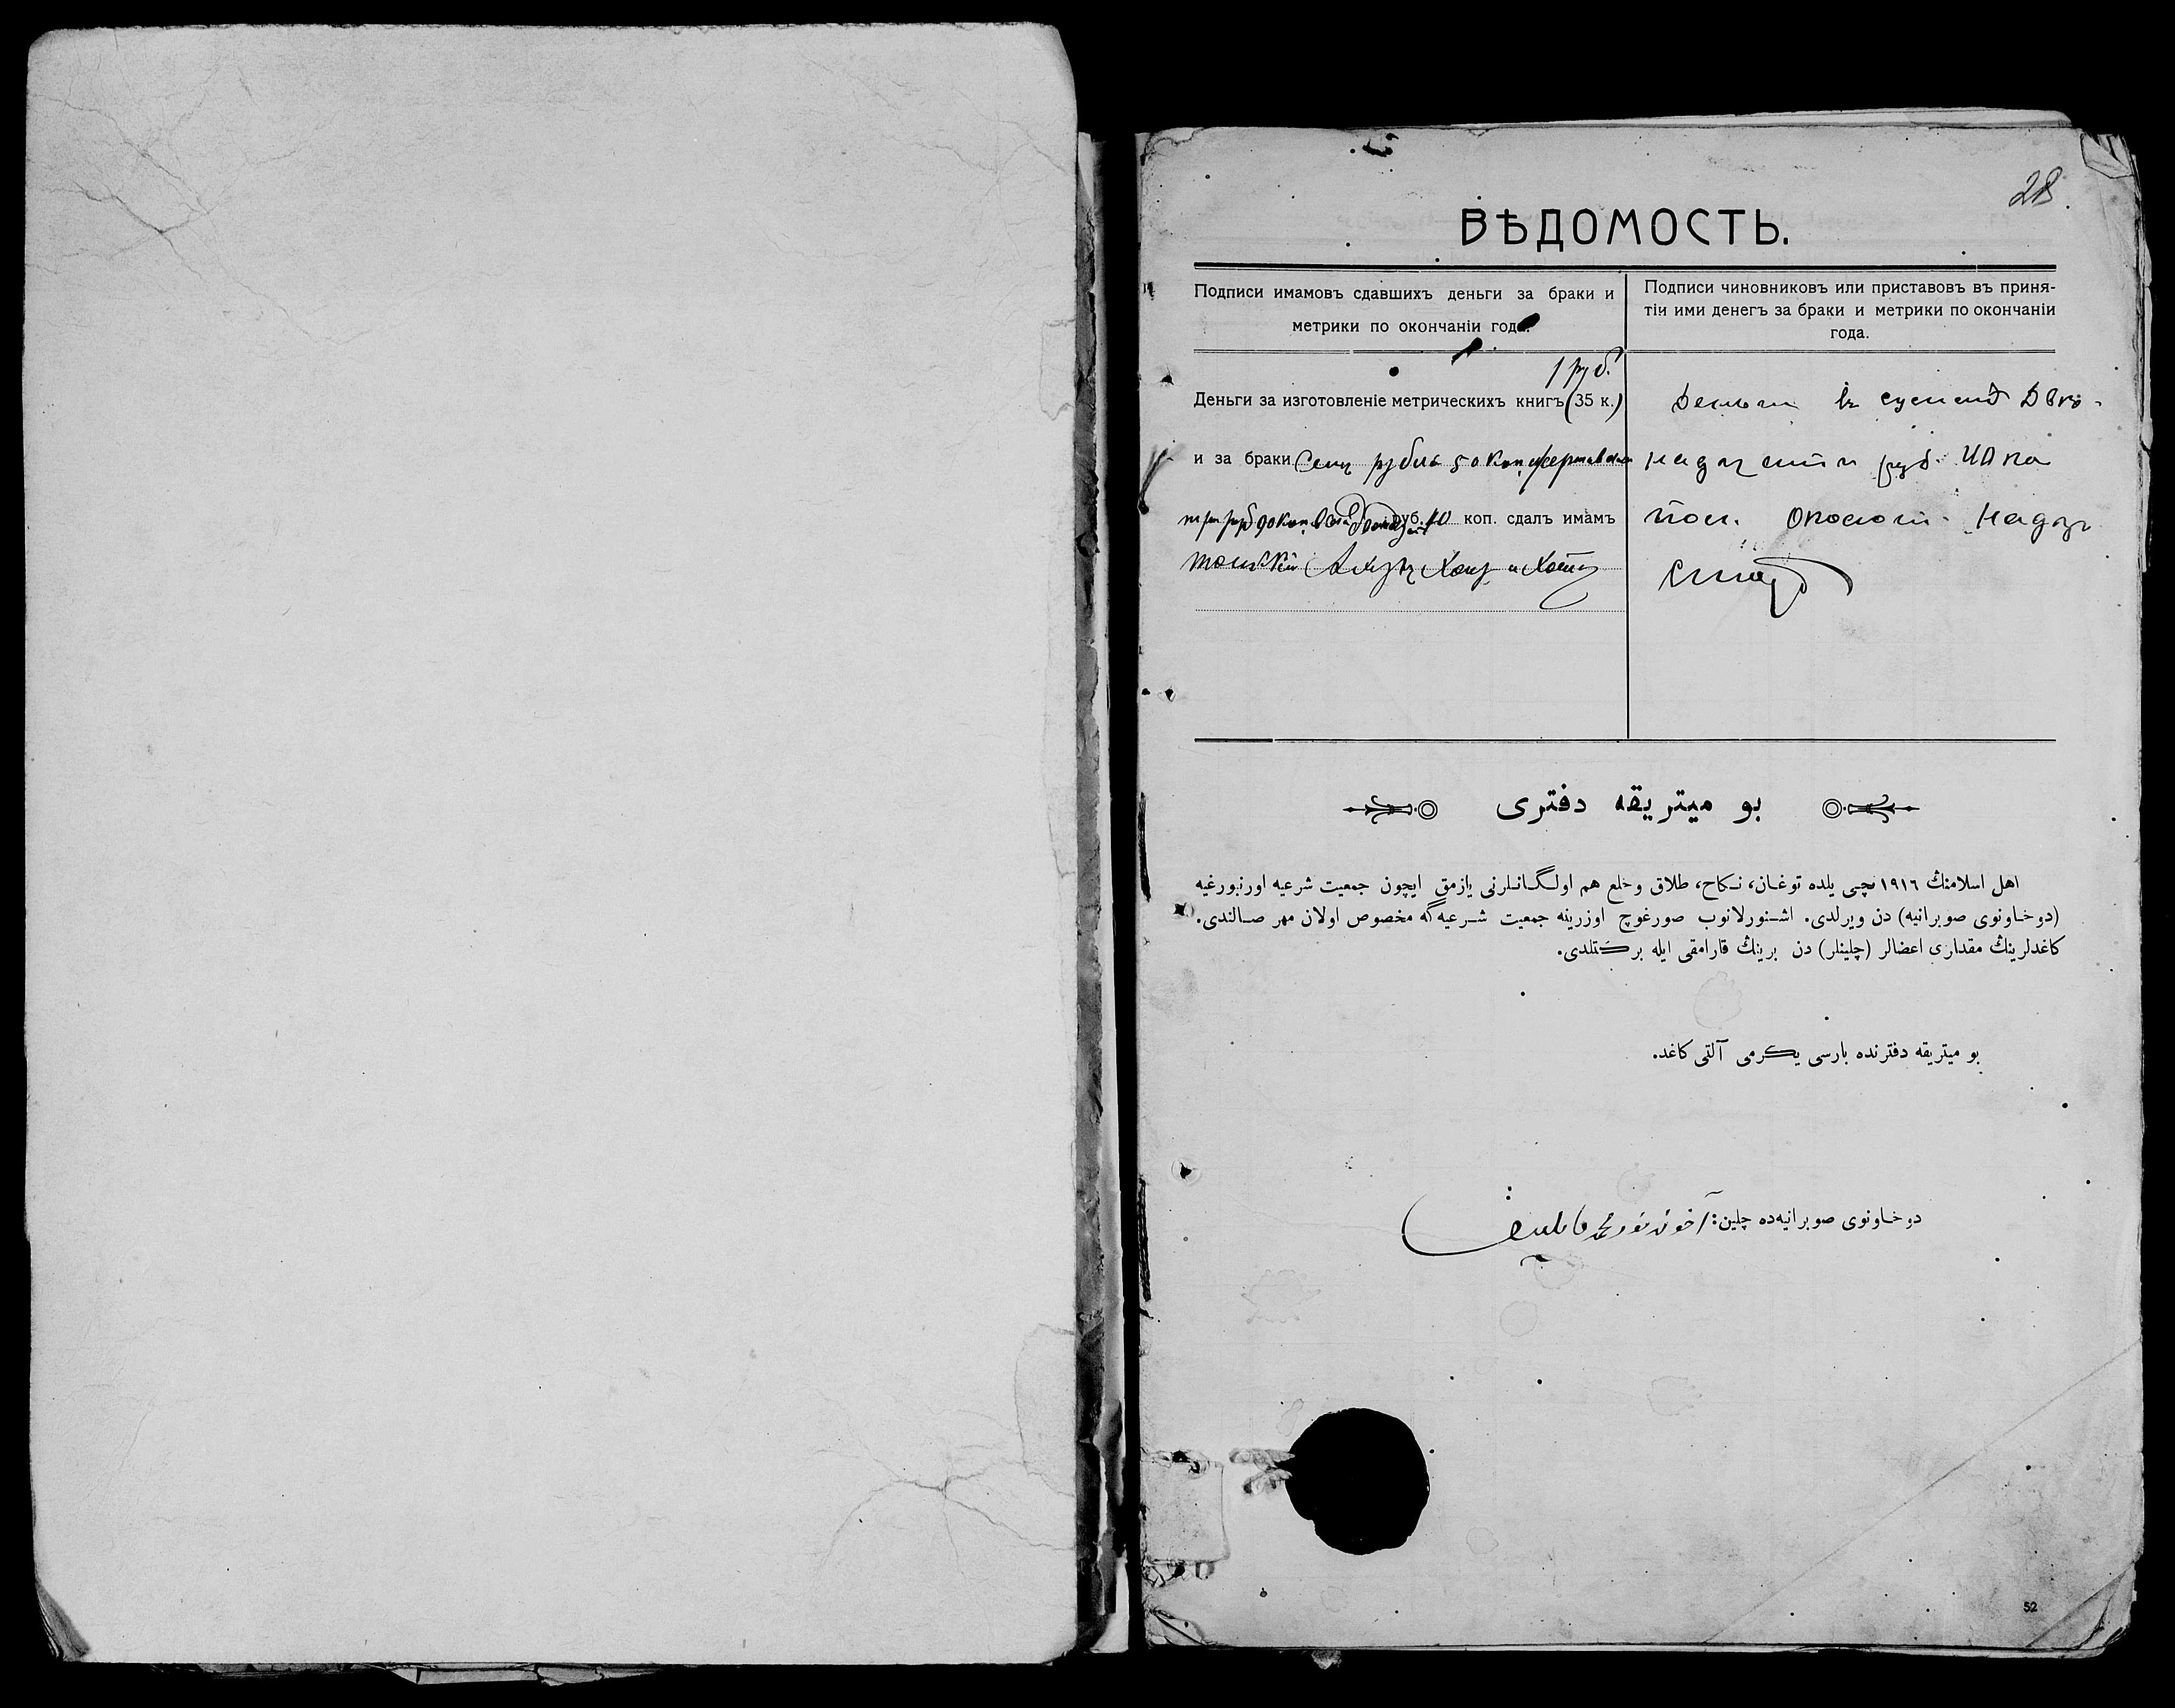 28
ВѢДОМОСТЬ.
Подписи имамовъ сдавшихъ деньги за браки и
метрики по окончаніи года.
Подписи чиновниковъ или приставовъ въ приня-
тіи ими денегъ за браки и метрики по окончаніи
года.
1 руб.
Деньги за изготовленіе метрическихъ книгъ (35 к.)
и за браки Семь рубль 50 коп
три руб 90 коп. руб. 40 коп. сдалъ имамъ
Деньги въ суммѣ Двѣ-
надцать руб.
بو ميتريقه دفترى
اهل اسلامنڭ ١٩١٦ نچى يلده توغان، نكاح، طلاق و خلع هم اولگانلرنى يازمق ايچون جمعيت شرعيه اورنبورغيه
(دوخاونوى صوبرانيه) دن ويرلدى. اشنورلانوب صورغوچ اوزرينه جمعيت شرعيه‌گه مخصوص اولان مهر صالندى.
كاغدلرينڭ مقدارى اعضالر (چلينلر) دن برينڭ قارامقى ايله بركتلدى.
بو ميتريقه دفترنده بارسى يكرمى آلتى كاغد.
دوخاونوى صوبرانيه‌ده چلين:
52